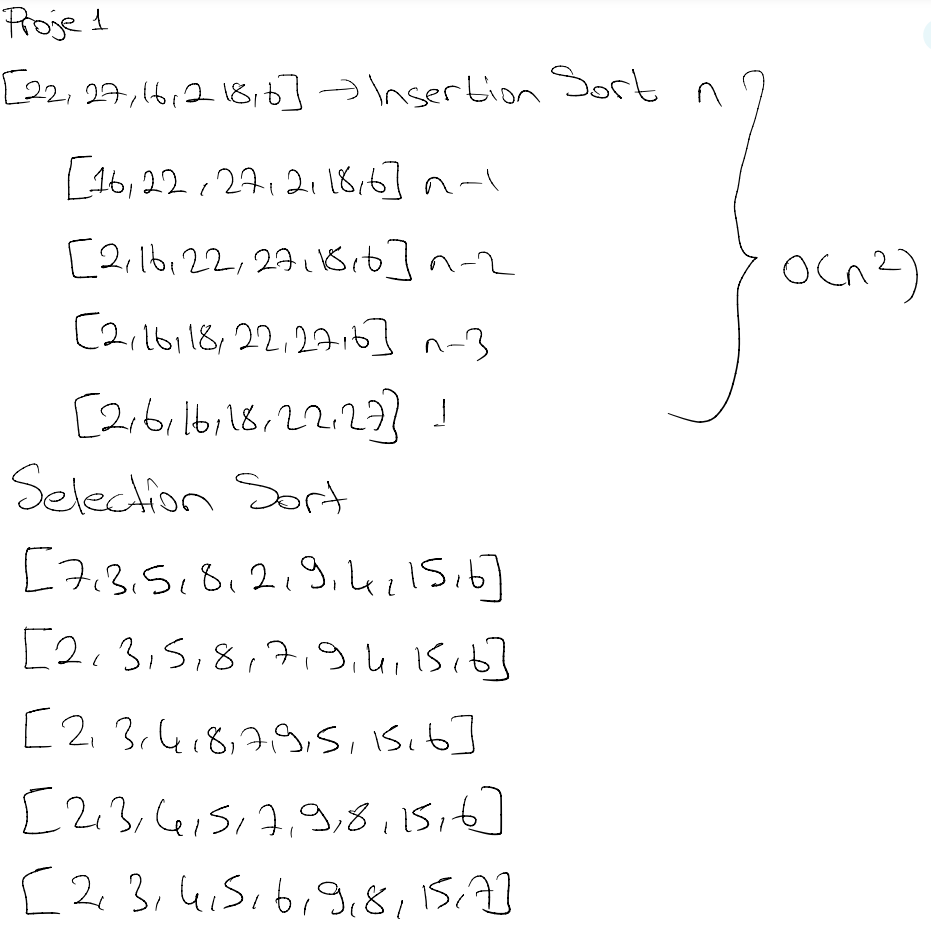 Proje 1
[22, 27, 16, 2 18, 6] → Insertion Sort n
[16, 22, 27, 2, 18, 6] n-1
[2, 16, 22, 27, 18, 6] n-2
O(n2)
[2, 16, 18, 22, 27, 6] n-3
[2, 6, 16, 18, 22, 27] 1
Selection Sort
[7, 3, 5, 8, 2, 9, 4, 15, 6]
[2, 3, 5, 8, 7, 9, 4, 15, 6]
[2, 3, 4, 8, 7, 9, 5, 15, 6]
[2, 3, 4, 5, 7, 9, 8, 15, 6]
[2, 3, 4, 5, 6, 9, 8, 15, 7]